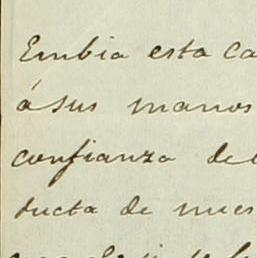 Embia esta Ca
á sus manos
confianza de
ducta de nues